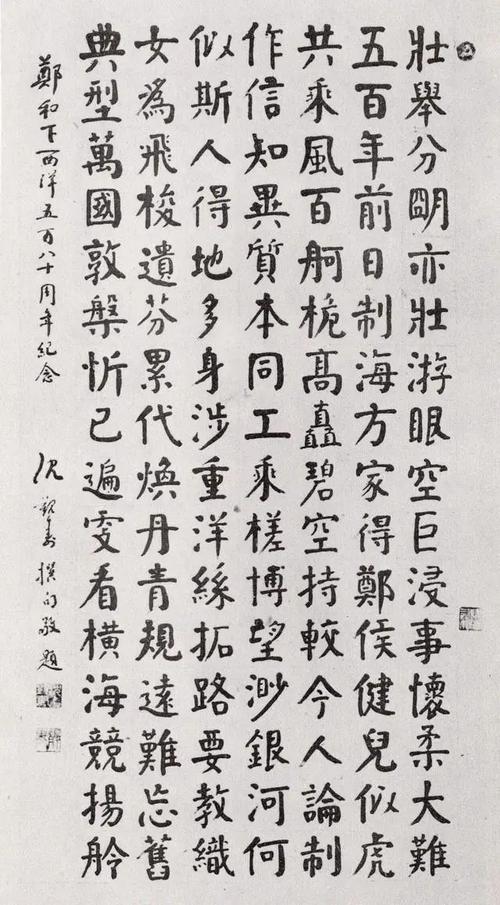 壯舉分朙亦壯游眼空巨浸事懷柔大難
五百年前日制海方家得鄭侯健兒似虎
共乘風百舸桅髙矗碧空持較今人論制
作信知異質本同工乘槎博望渺銀河何
似斯人得地多身涉重洋絲拓路要教織
女爲飛梭遺芬累代煥丹青規遠難忘舊
典型萬國敦槃忻已遍雯看橫海競揚舲
鄭和下西洋五百八十周年紀念
沈覲壽撰句敬題